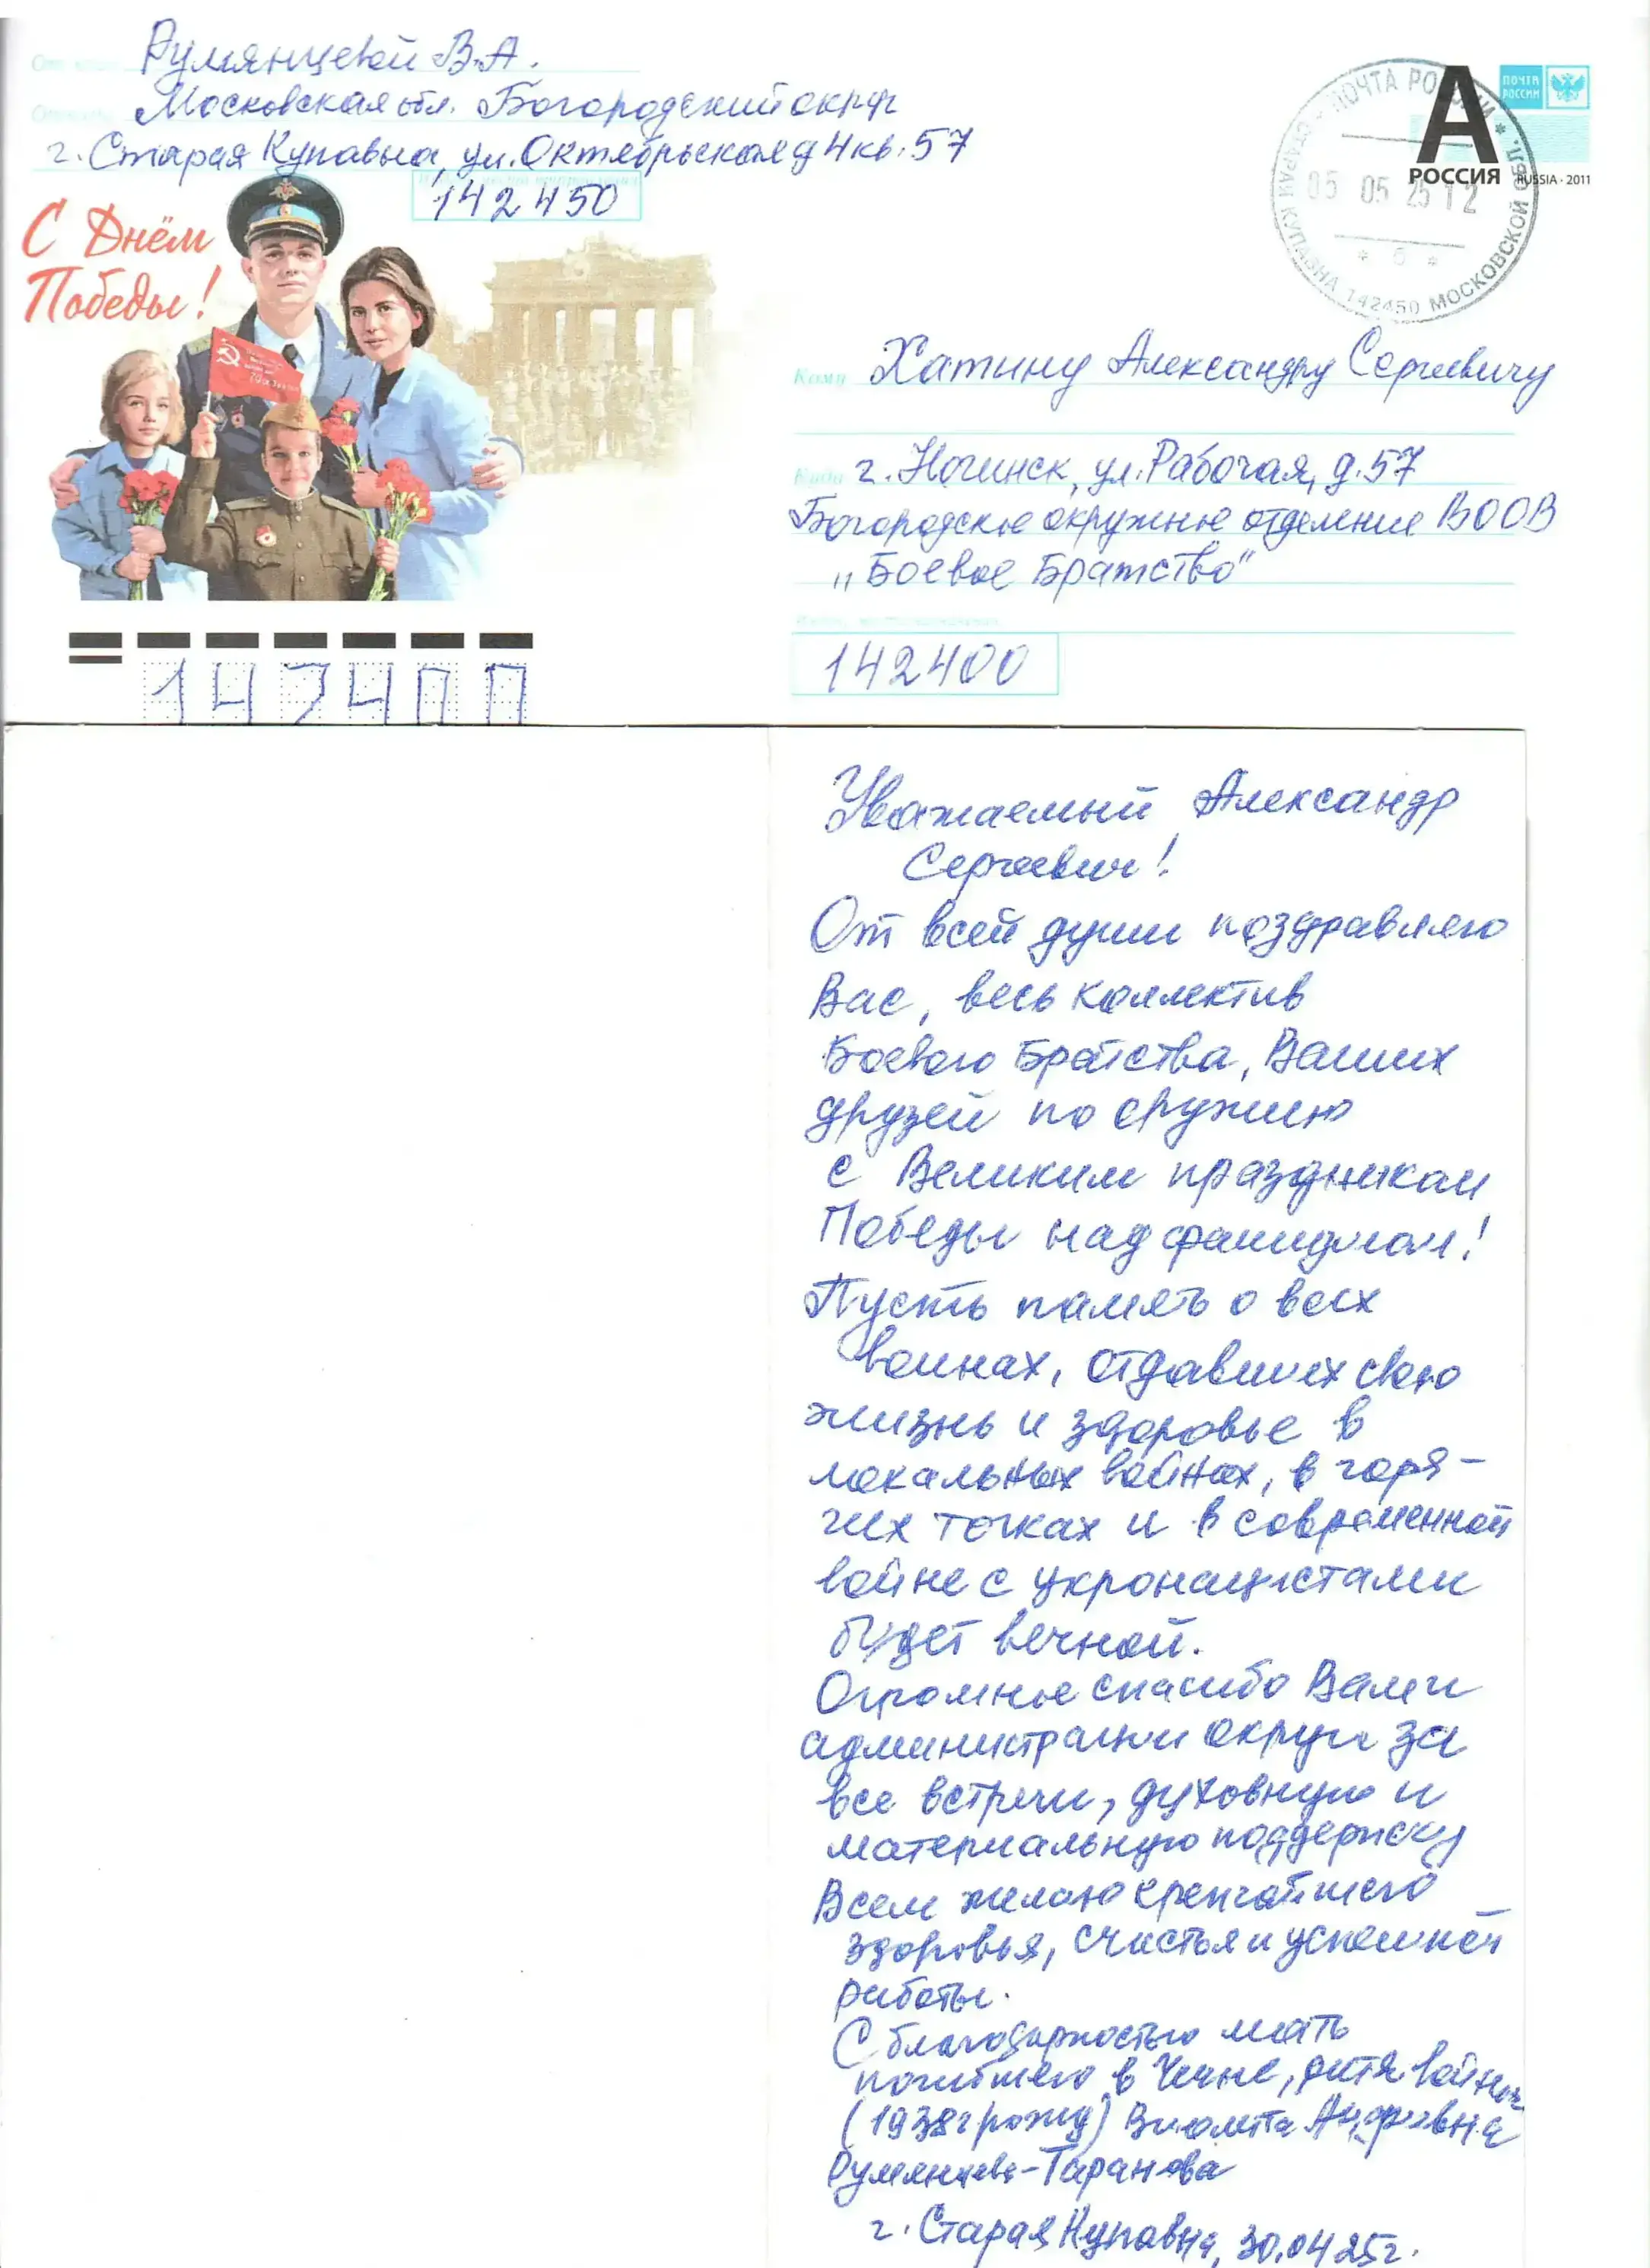 Румянцевой В.А.
Московская обл. Богородский округ
г. Старая Купавна, ул. Октябрьская д 4 кв. 57
142450
С Днём
Победы!
ПОЧТА РОССИИ
А
РОССИЯ
RUSSIA · 2011
ПОЧТА РОССИИ * СТАРАЯ КУПАВНА 142450 МОСКОВСКОЙ ОБЛ. *
05 05 25 12
* б *
Кому Хатину Александру Сергеевичу
Куда г. Ногинск, ул. Рабочая, д. 57
Богородское окружное отделение ВООВ
„Боевое Братство"
142400
142400
Уважаемый Александр
Сергеевич!
От всей души поздравляю
Вас, весь коллектив
Боевого Братства, Ваших
друзей по оружию
с Великим праздником
Победы над фашизмом!
Пусть память о всех
воинах, отдавших свою
жизнь и здоровье в
локальных войнах, в горя-
чих точках и в современной
войне с укронацистами
будет вечной.
Огромное спасибо Вам и
администрации округа за
все встречи, духовную и
материальную поддержку
Всем желаю крепчайшего
здоровья, счастья и успешной
работы.
С благодарностью мать
погибшего в Чечне, дитя войны
(1938г рожд) Виолетта Андреевна
Румянцева-Таранова
г. Старая Купавна, 30.04 25г.